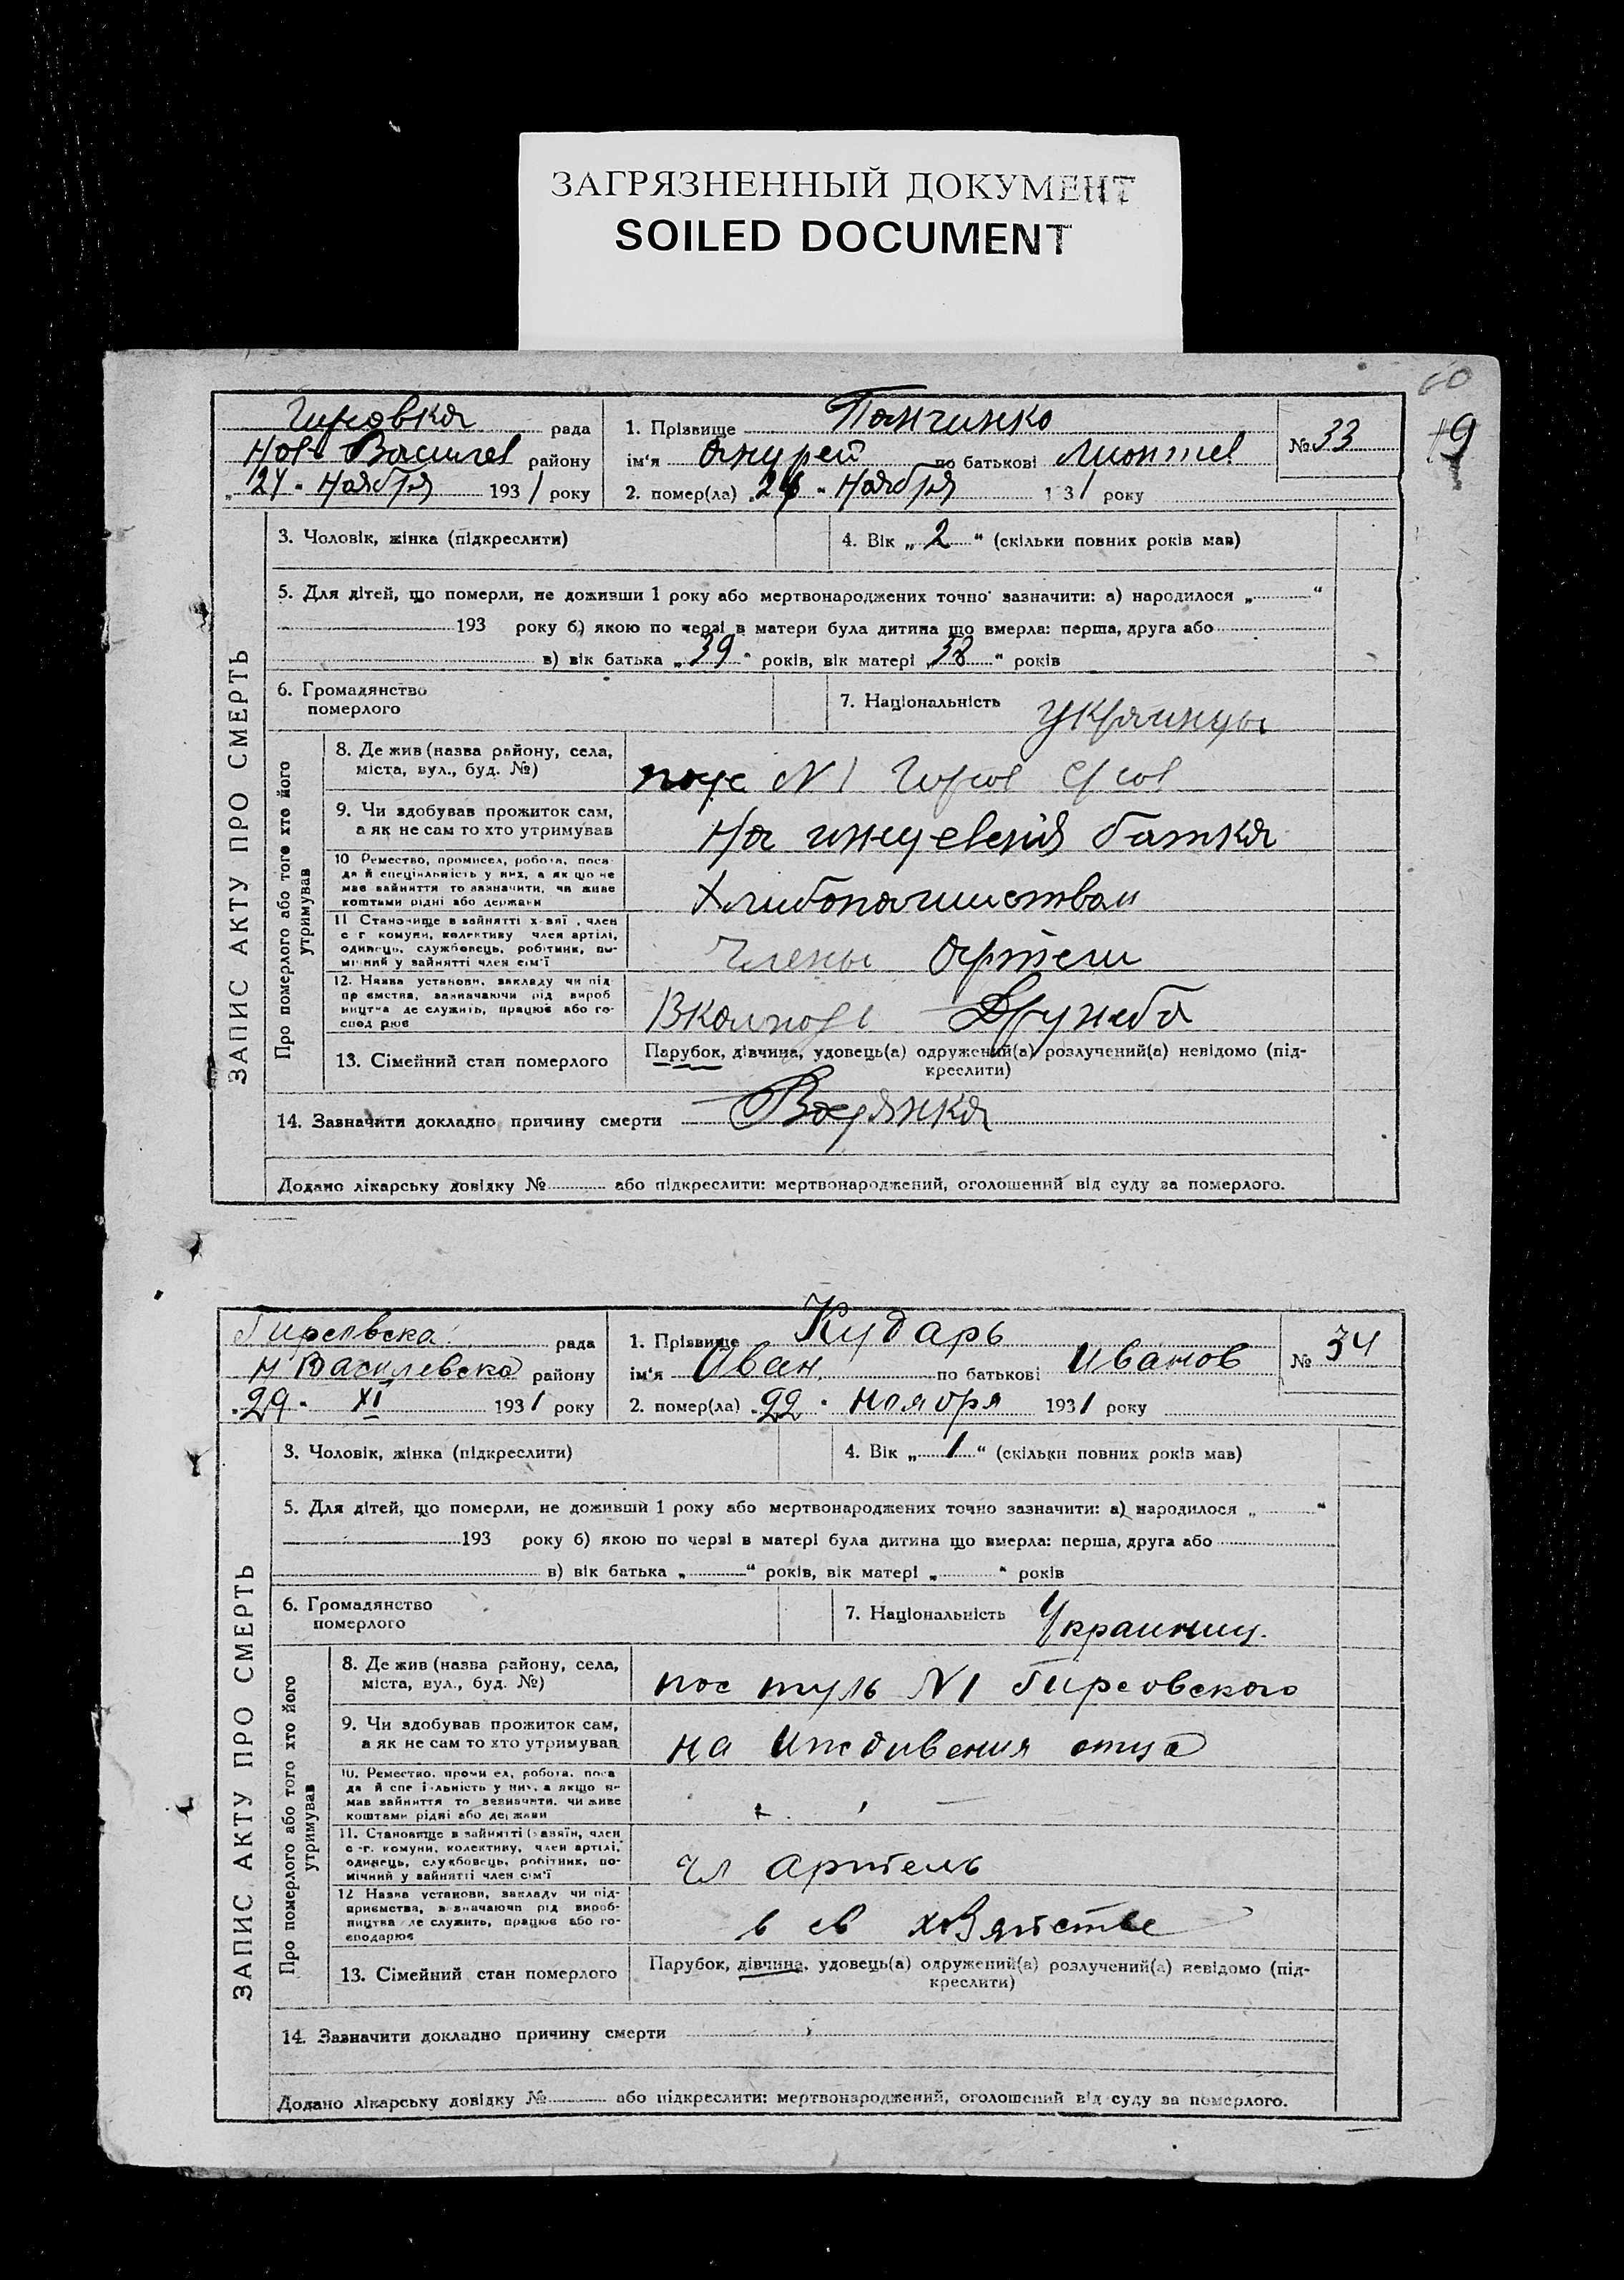 ЗАГРЯЗНЕННЫЙ ДОКУМЕНТ
SOILED DOCUMENT
60
19
рада
Нов- Василев району
"24" Ноября 1931 року
1. Прізвище Панчинко
ім'я Андрей по батькові
2. помер(ла) Ноября 1931 року
№ 33
ЗАПИС АКТУ ПРО СМЕРТЬ
3. Чоловік, жінка (підкреслити)
4. Вік „2" (скільки повних років мав)
5. Для дітей, що померли, не доживши 1 року або мертвонароджених точно зазначити: а) народилося „ "
193 року б) якою по черзі в матери була дитина що вмерла: перша, друга або
в) вік батька „39" років, вік матері „38" років
6. Громадянство
померлого
7. Національність Украинцы
Про померлого або того хто його
утримував
8. Де жив (назва району, села,
міста, вул., буд. №)
N 1
9. Чи здобував прожиток сам,
а як не сам то хто утримував
На батька
10 Ремество, промисел, робота, поса
да й спеціяльність у них, а як що не
має зайняття то зазначити, чи живе
коштами рідні або держави
11 Становище в зайнятті хазяї, член
с г комуни, колективу член артілі,
одинець, службовець, робітник, по-
мічний у зайнятті член сім'ї
Члены Артели
12. Назва установи, закладу чи під
приємства, зазначаючи рід вироб
ництва де служить, працює або го-
сподарює
Дружба
13. Сімейний стан померлого
Парубок, дівчина, удовець(а) одружений(а) розлучений(а) невідомо (під-
креслити)
14. Зазначити докладно причину смерти Водянка
Додано лікарську довідку № або підкреслити: мертвонароджений, оголошений від суду за померлого.
Гирсовска рада
Н Василевско району
"29" XI 1931 року
1. Прізвище Кударь
ім'я Иван по батькові Иванов
2. помер(ла) "22" ноября 1931 року
№ 34
ЗАПИС АКТУ ПРО СМЕРТЬ
3. Чоловік, жінка (підкреслити)
4. Вік „1" (скільки повних років мав)
5. Для дітей, що померли, не доживши 1 року або мертвонароджених точно зазначити: а) народилося „ "
193 року б) якою по черзі в матері була дитина що вмерла: перша, друга або
в) вік батька „ " років, вік матері „ " років
6. Громадянство
померлого
7. Національність Украинец.
Про померлого або того хто його
утримував
8. Де жив (назва району, села,
міста, вул., буд. №)
пос N 1 Гирсовского
9. Чи здобував прожиток сам,
а як не сам то хто утримував
на иждивения отца
10. Ремество, промисел, робота, поса
да й спеціяльність у них, а якщо не
мав зайняття то зазначити, чи живе
коштами рідні або держави
11. Становище в зайнятті (хазяїн, член
с-г. комуни, колективу, член артілі,
одинець, службовець, робітник, по-
мічний у зайнятті член сім'ї
чл артель
12 Назва установи, закладу чи під-
приємства, зазначаючи рід вироб-
ництва де служить, працює або го-
сподарює
в св хозяйстве
13. Сімейний стан померлого
Парубок, дівчина, удовець(а) одружений(а) розлучений(а) невідомо (під-
креслити)
14. Зазначити докладно причину смерти
Додано лікарську довідку № або підкреслити: мертвонароджений, оголошений від суду за померлого.